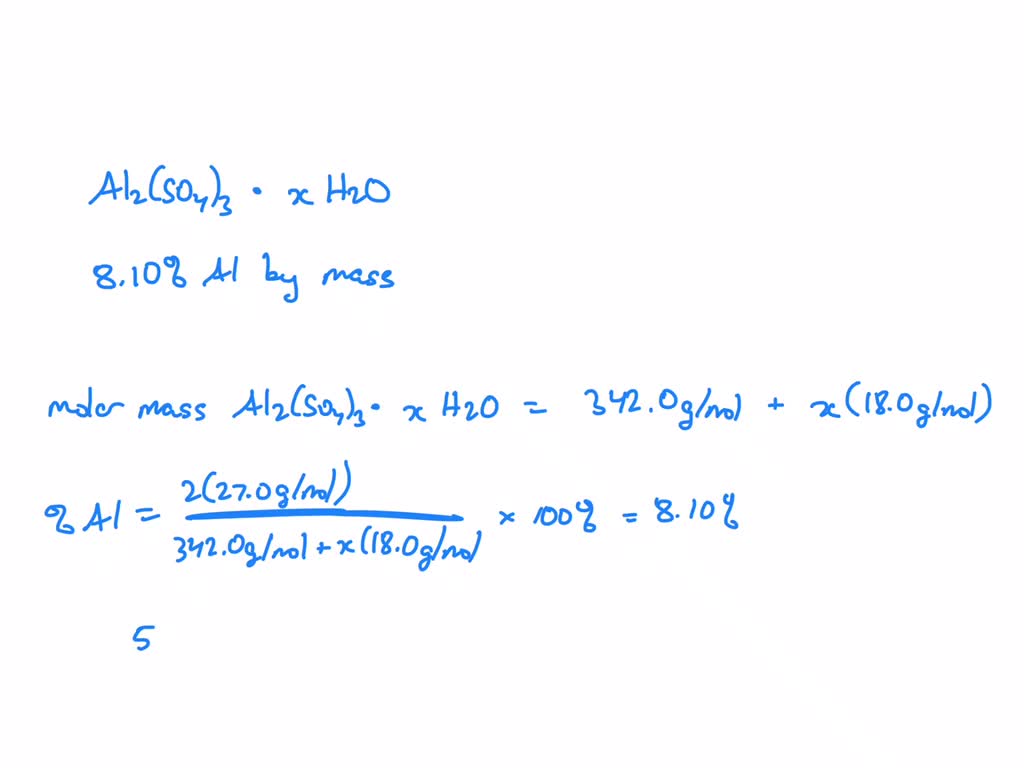 Al2(SO4)3 · x H2O
8.10% Al by mass
molar mass Al2(SO4)3 · x H2O = 342.0g/mol + x(18.0g/mol)
% Al = 2(27.0g/mol) / 342.0g/mol + x(18.0g/mol × 100% = 8.10%
5